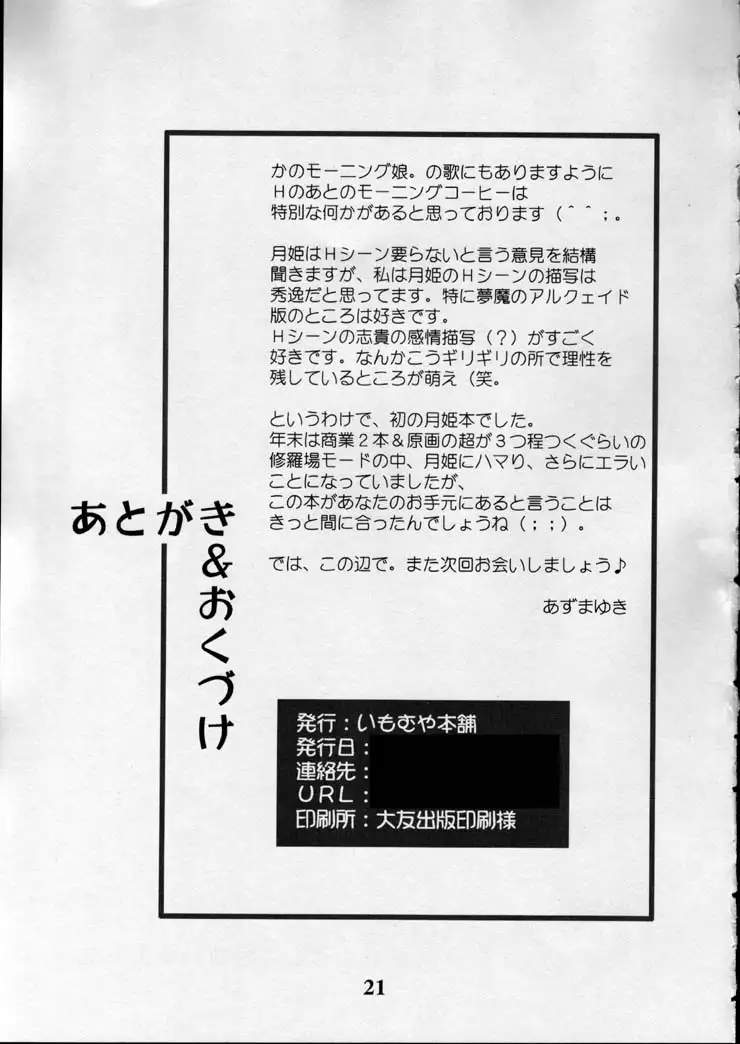 かのモーニング娘。の歌にもありますように
Ｈのあとのモーニングコーヒーは
特別な何かがあると思っております（＾＾；。
月姫はＨシーン要らないと言う意見を結構
聞きますが、私は月姫のＨシーンの描写は
秀逸だと思ってます。特に夢魔のアルクェイド
版のところは好きです。
Ｈシーンの志貴の感情描写（？）がすごく
好きです。なんかこうギリギリの所で理性を
残しているところが萌え（笑。
というわけで、初の月姫本でした。
年末は商業２本＆原画の超が３つ程つくぐらいの
修羅場モードの中、月姫にハマり、さらにエラい
ことになっていましたが、
この本があなたのお手元にあると言うことは
きっと間に合ったんでしょうね（；；）。
では、この辺で。また次回お会いしましょう♪
あずまゆき
あとがき
＆おくづけ
発行：いもむや本舗
発行日：
連絡先：
ＵＲＬ：
印刷所：大友出版印刷様
21